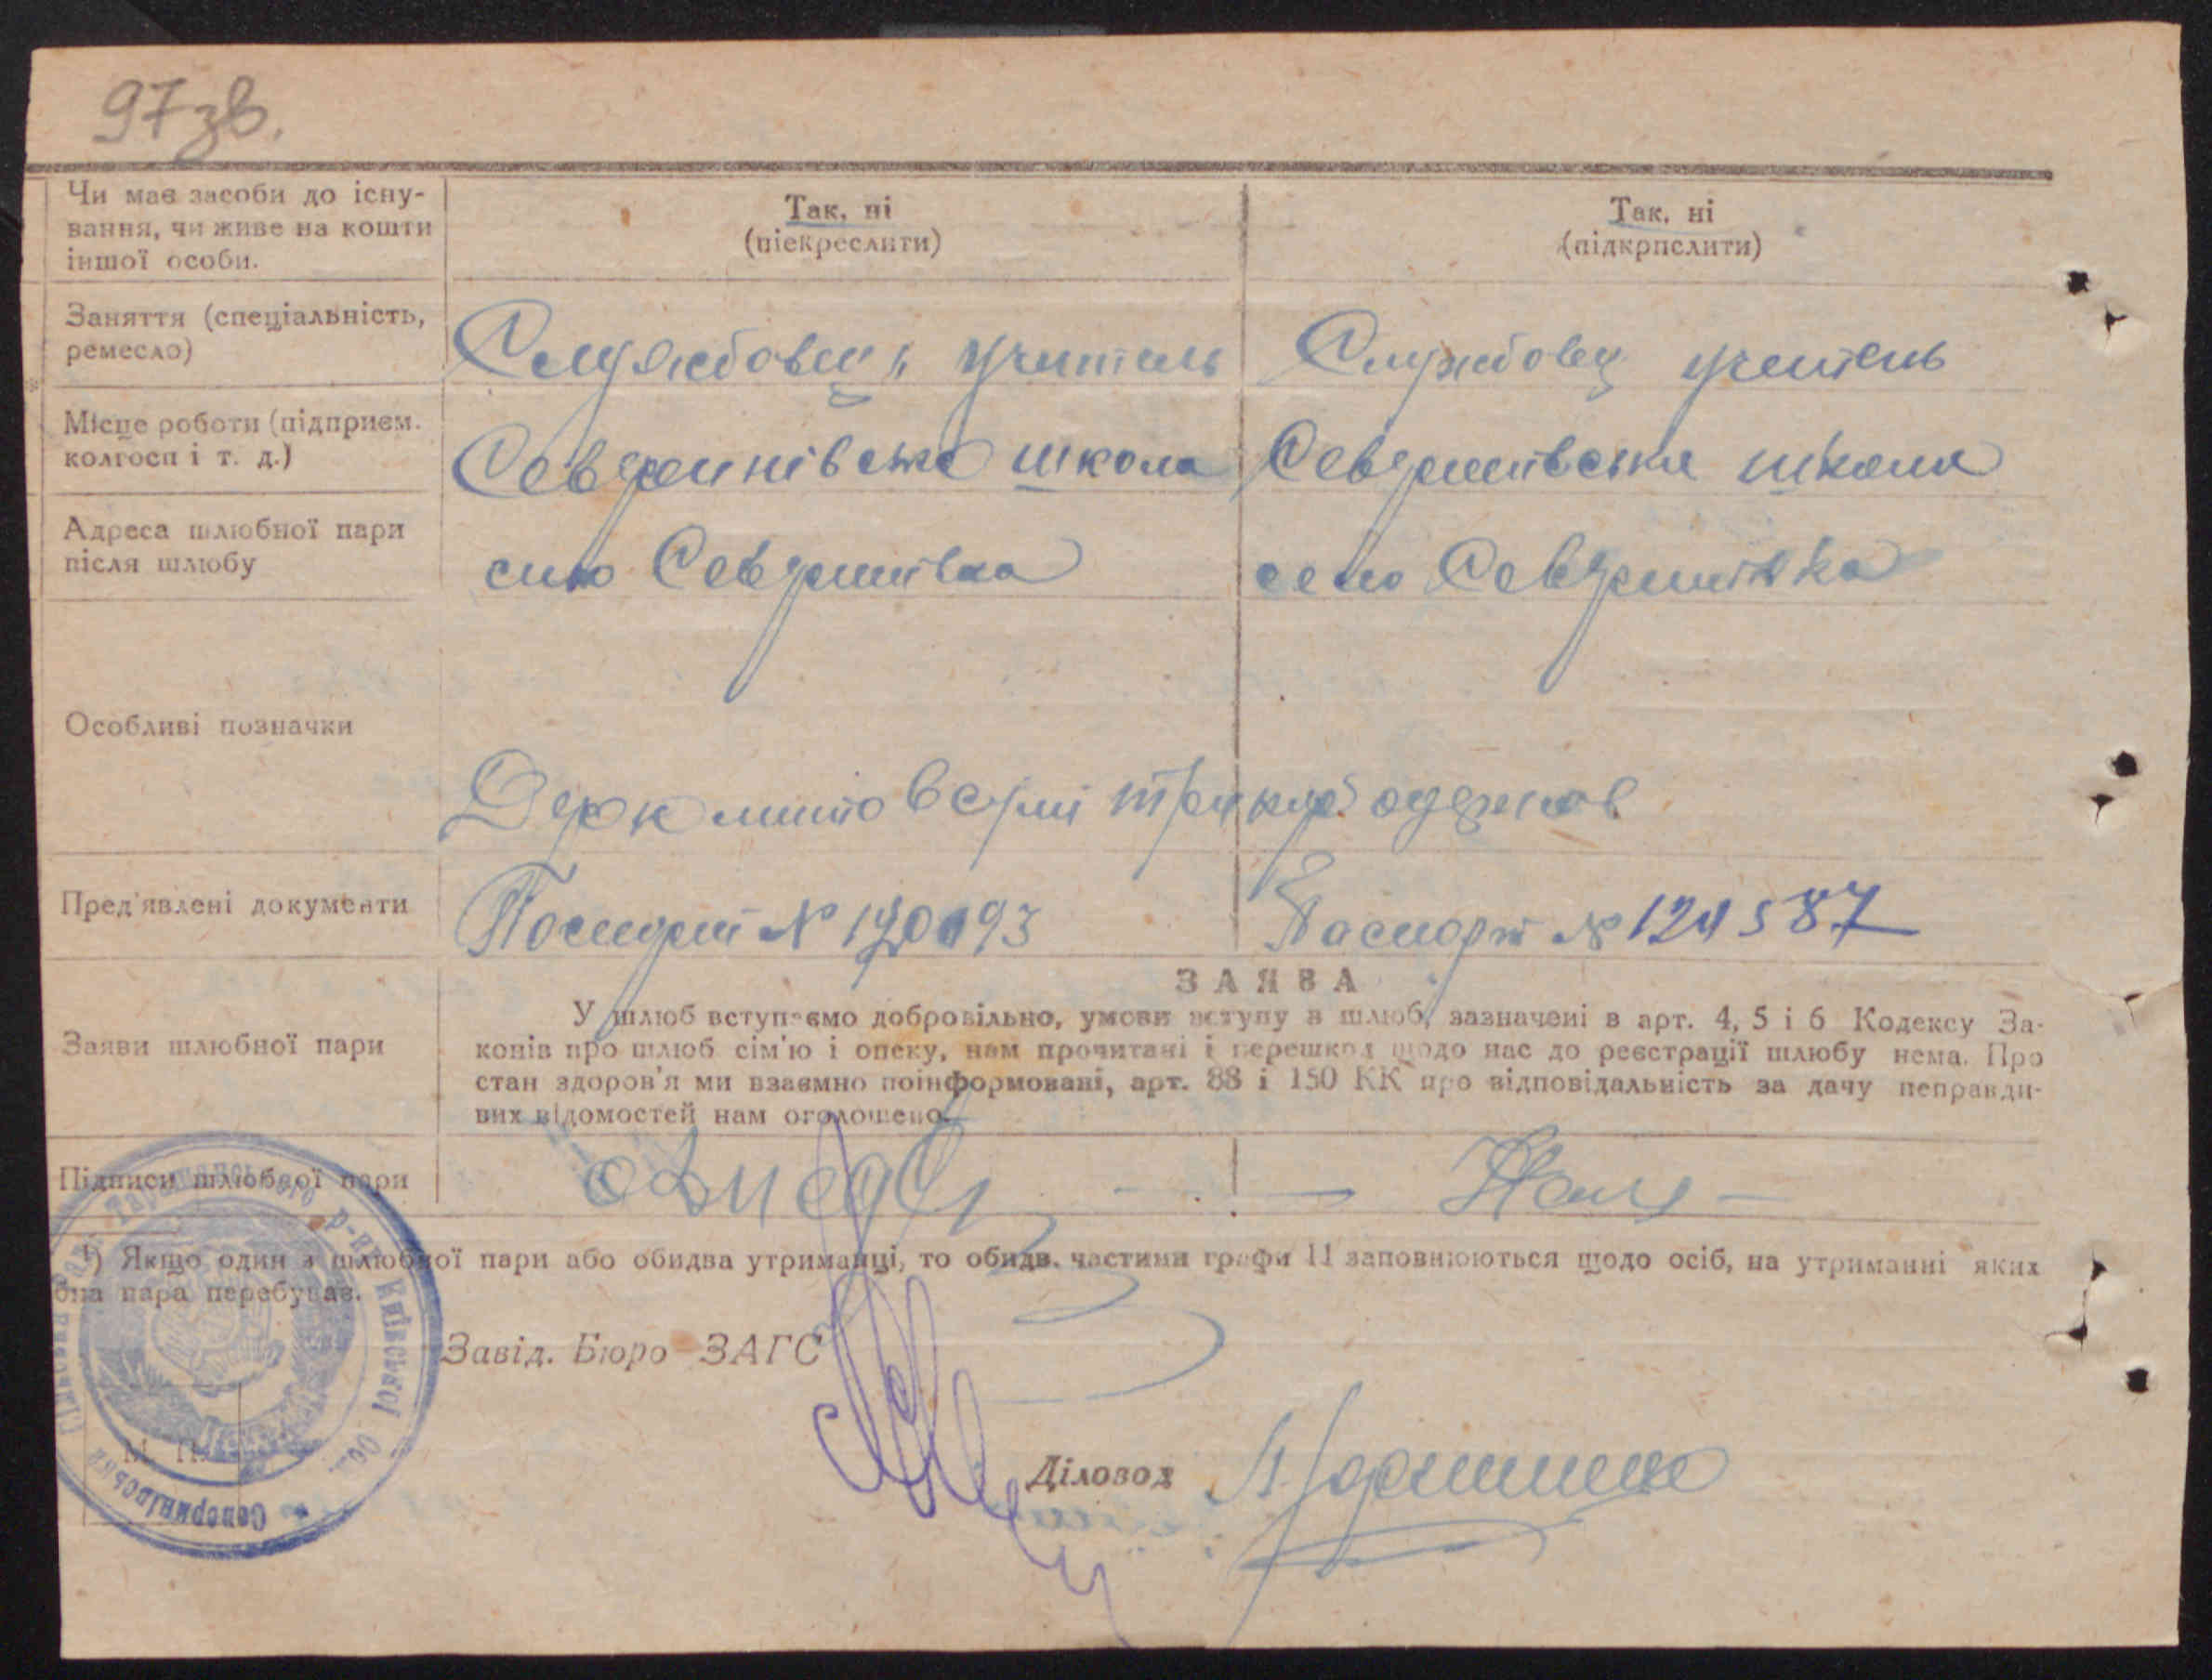 97зв.
Чи має засоби до існу-
вання, чи живе на кошти
іншої особи.
Так, ні
(піекреслити)
Так, ні
(підкрпслити)
Заняття (спеціальність,
ремесло)
Службовец учитель
Службовец учитель
Місце роботи (підприєм.
колгосп і т. д.)
Северинівська школа
Северинівська школа
Адреса шлюбної пари
після шлюбу
село Северинівка
село Северинівка
Особливі позначки
Держмито в сумі три кар. одержав
Пред'явлені документи
Паспорт №
Паспорт № 124587
Заяви шлюбної пари
ЗАЯВА
У шлюб вступаємо добровільно, умови вступу в шлюб, зазначені в арт. 4, 5 і 6 Кодексу За-
конів про шлюб сім'ю і опеку, нам прочитані і перешкод щодо нас до реєстрації шлюбу нема. Про
стан здоров'я ми взаємно поінформовані, арт. 88 і 150 КК про відповідальність за дачу неправди-
вих відомостей нам оголошено.
Підписи шлюбної пари
¹) Якщо один з шлюбної пари або обидва утриманці, то обидв. частини графи 11 заповнюються щодо осіб, на утриманні яких
бна пара перебуває.
Завід. Бюро ЗАГС
М. П.
Діловод
Северинівська сільська Рада Таращанського р-ну Київської Об.